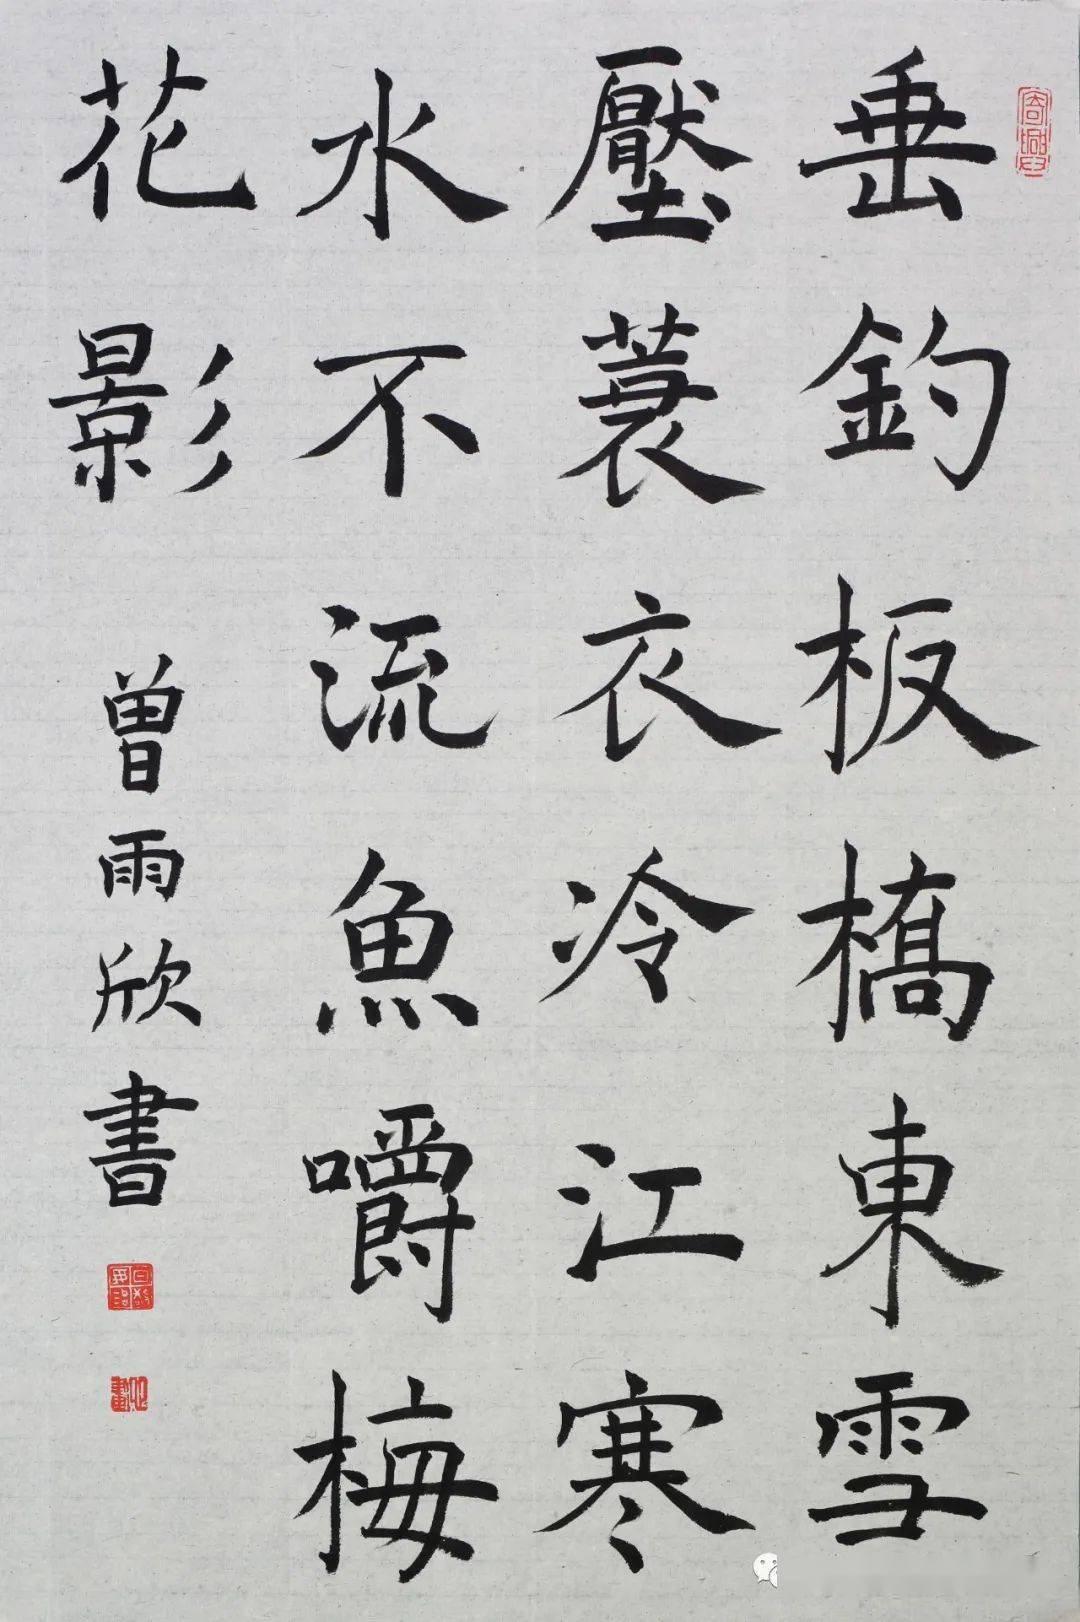 垂釣板橋東雪
壓蓑衣冷江寒
水不流魚嚼梅
花影
曾雨欣書